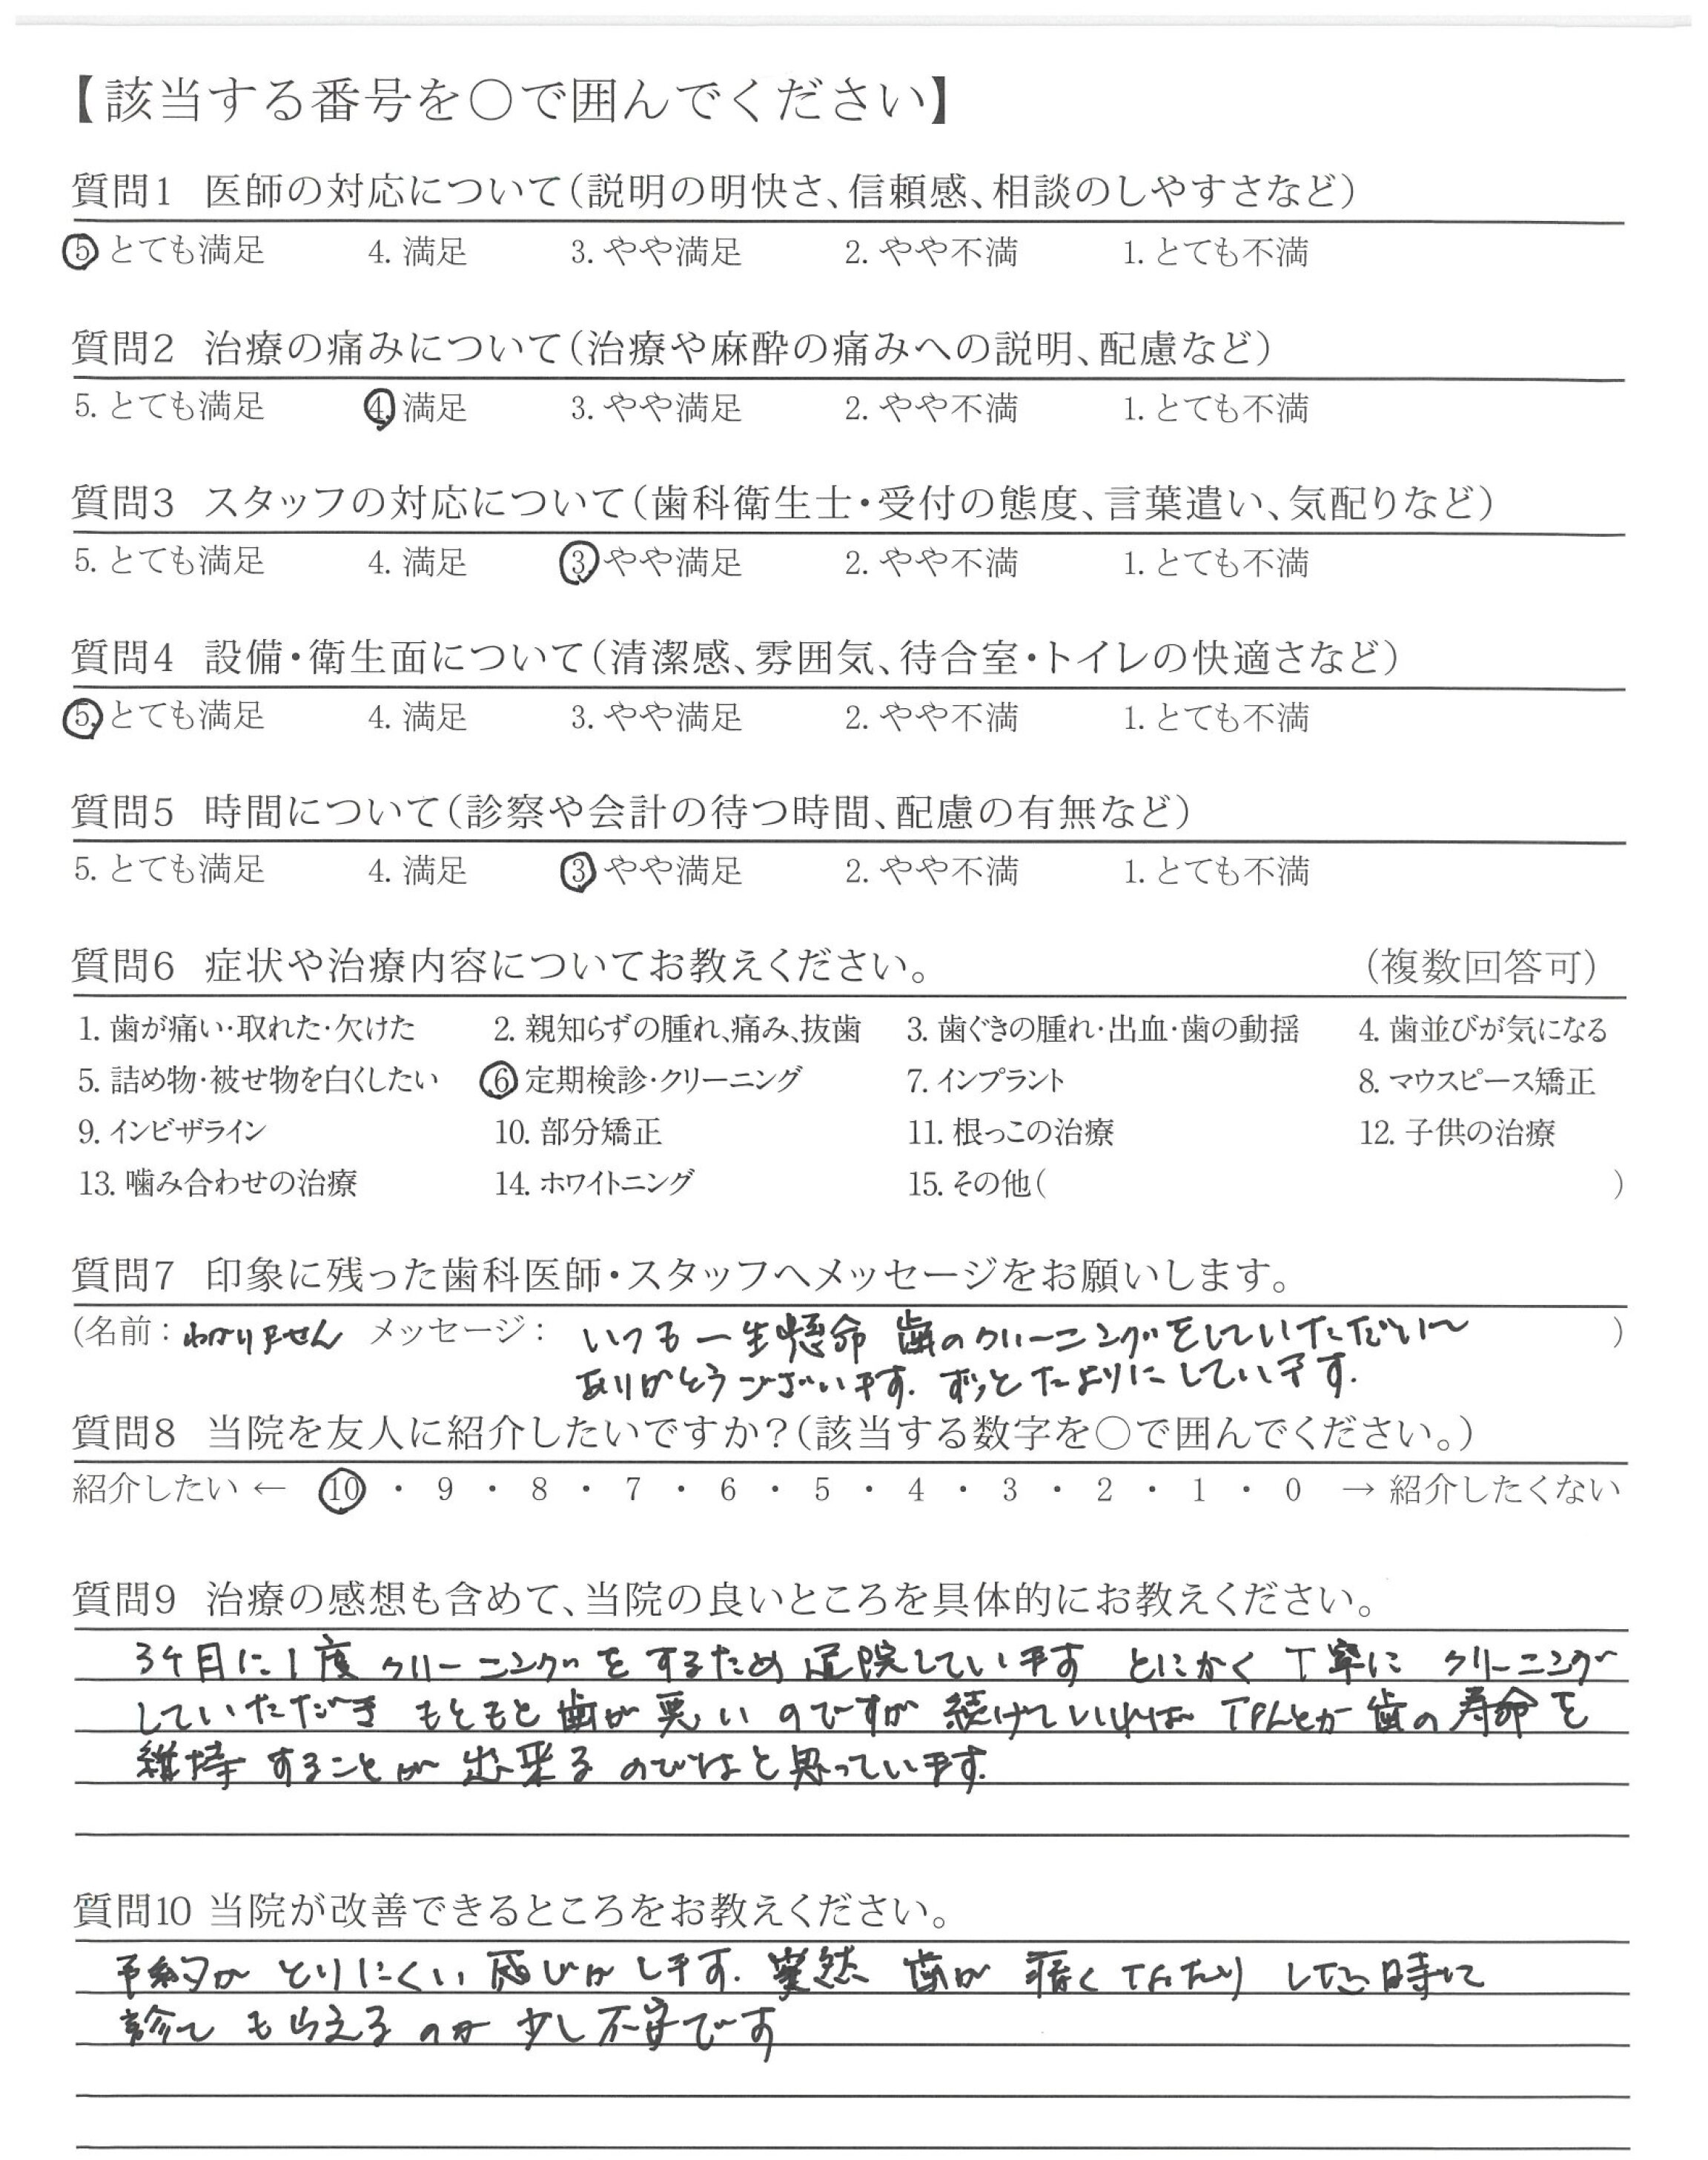 【該当する番号を○で囲んでください】
質問1 医師の対応について(説明の明快さ、信頼感、相談のしやすさなど)
5. とても満足 4. 満足 3. やや満足 2. やや不満 1. とても不満
質問2 治療の痛みについて(治療や麻酔の痛みへの説明、配慮など)
5. とても満足 4. 満足 3. やや満足 2. やや不満 1. とても不満
質問3 スタッフの対応について(歯科衛生士・受付の態度、言葉遣い、気配りなど)
5. とても満足 4. 満足 3. やや満足 2. やや不満 1. とても不満
質問4 設備・衛生面について(清潔感、雰囲気、待合室・トイレの快適さなど)
5. とても満足 4. 満足 3. やや満足 2. やや不満 1. とても不満
質問5 時間について(診察や会計の待つ時間、配慮の有無など)
5. とても満足 4. 満足 3. やや満足 2. やや不満 1. とても不満
質問6 症状や治療内容についてお教えください。 (複数回答可)
1. 歯が痛い・取れた・欠けた 2. 親知らずの腫れ、痛み、抜歯 3. 歯ぐきの腫れ・出血・歯の動揺 4. 歯並びが気になる
5. 詰め物・被せ物を白くしたい 6. 定期検診・クリーニング 7. インプラント 8. マウスピース矯正
9. インビザライン 10. 部分矯正 11. 根っこの治療 12. 子供の治療
13. 噛み合わせの治療 14. ホワイトニング 15. その他( )
質問7 印象に残った歯科医師・スタッフへメッセージをお願いします。
(名前:わかりません メッセージ: いつも一生懸命 歯のクリーニングをしていただいて )
ありがとうございます。ずっとたよりにしています。
質問8 当院を友人に紹介したいですか?(該当する数字を○で囲んでください。)
紹介したい ← 10 ・ 9 ・ 8 ・ 7 ・ 6 ・ 5 ・ 4 ・ 3 ・ 2 ・ 1 ・ 0 → 紹介したくない
質問9 治療の感想も含めて、当院の良いところを具体的にお教えください。
3ケ月に1度 クリーニングをするため 通院しています とにかく 丁寧に クリーニング
していただき もともと 歯が 悪い のですが 続けていければ なんとか 歯の 寿命を
維持 することが 出来る のではと思っています。
質問10 当院が改善できるところをお教えください。
予約が とりにくい 感じが します。突然 歯が 痛く なったり した時に
診て もらえる のか 少し不安です